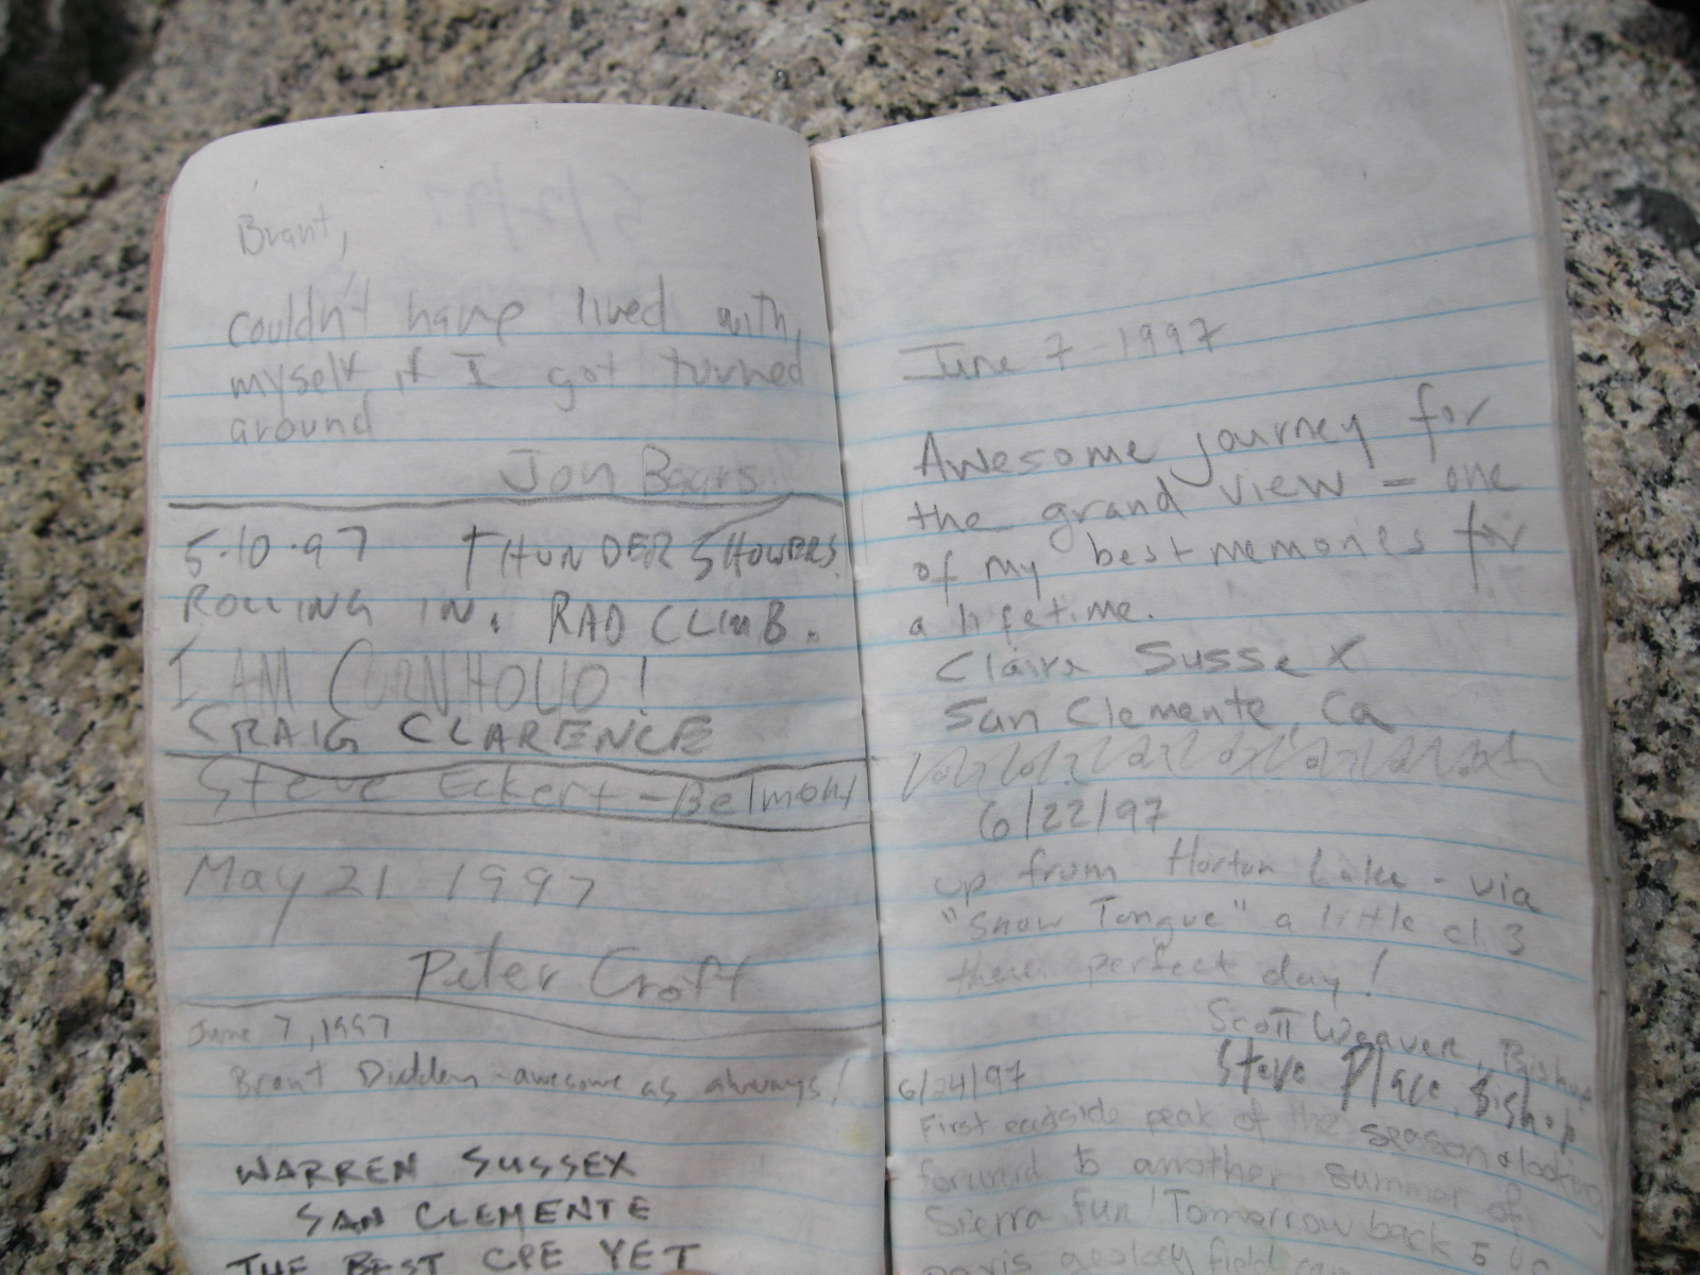 Brant,
couldn't have lived with
myself if I got turned
around
Jon
5.10.97 THUNDER SHOWERS
ROLLING IN. RAD CLIMB.
I AM CORNHOLIO!
CRAIG CLARENCE
Steve Eckert - Belmont
May 21 1997
Peter Croft
June 7, 1997
Brant Didden - awesome as always!
WARREN SUSSEX
SAN CLEMENTE
THE BEST CPE YET
June 7 - 1997
Awesome journey for
the grand view - one
of my best memories for
a lifetime.
Claire Sussex
San Clemente, Ca
6/22/97
up from Horton Lake - via
"Snow Tongue" a little cl. 3
there perfect day!
Scott Weaver, Bishop
Steve Place, Bishop
6/24/97
First eastside peak of the season & looking
forward to another summer of
Sierra fun! Tomorrow back to UC
Davis geology field camp